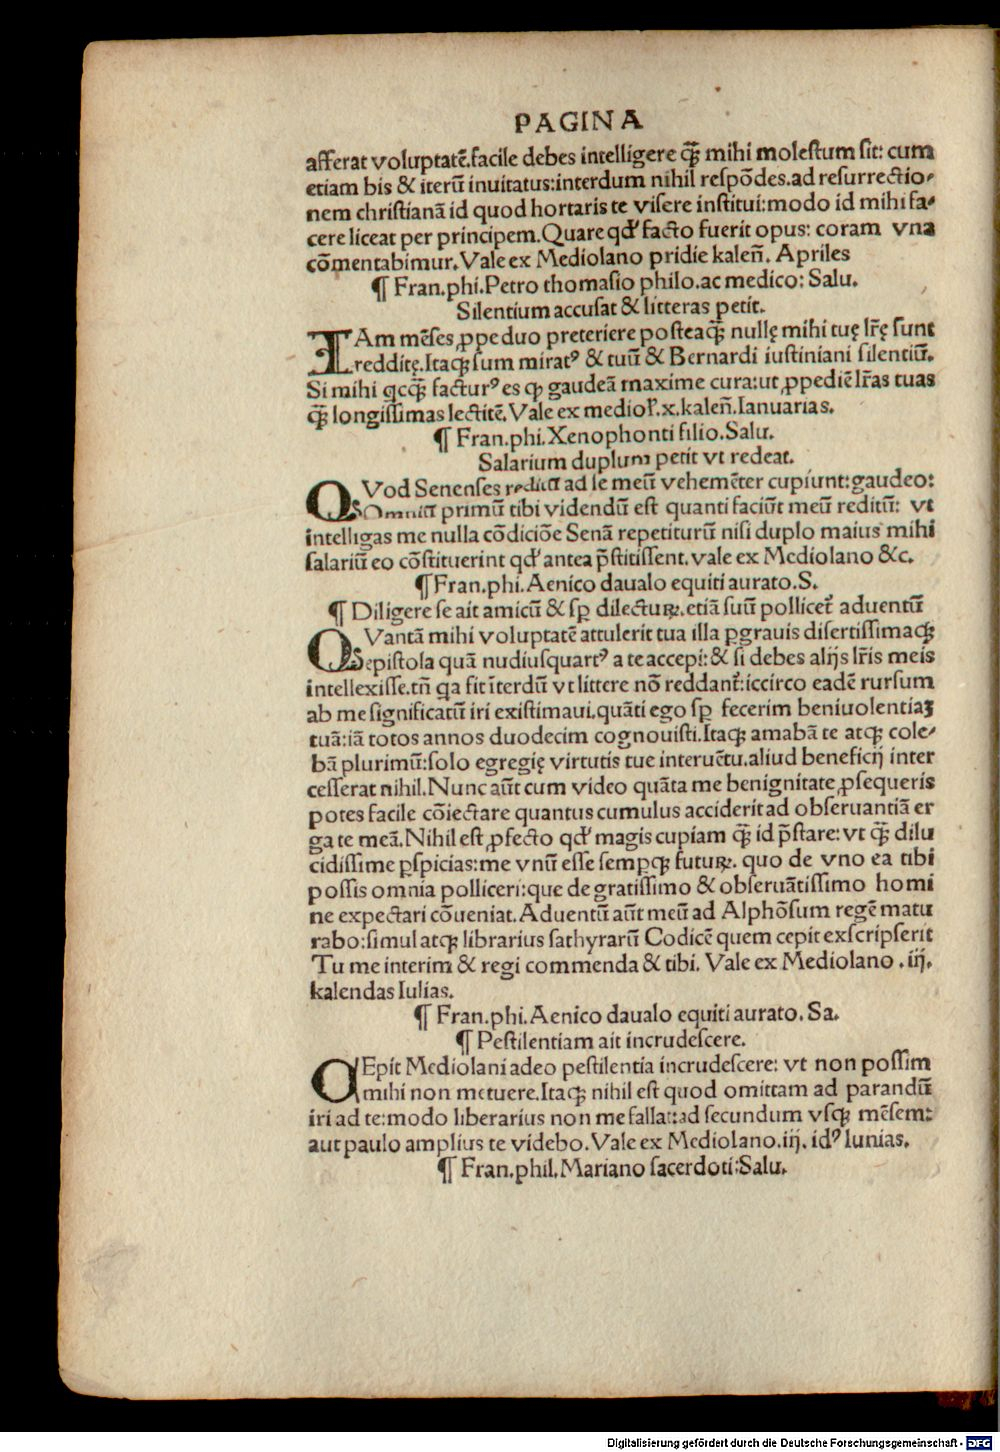 PAGINA
afferat voluptatē.facile debes intelligere q̄ꝫ mihi molestum sit: cum
etiam bis & iterū inuitatus:interdum nihil respōdes.ad resurrectio-
nem christianā id quod hortaris te visere institui:modo id mihi fa-
cere liceat per principem.Quare qđ facto fuerit opus: coram vna
cōmentabimur.Vale ex Mediolano pridie kaleñ. Apriles
¶ Fran.phi.Petro thomasio philo.ac medico: Salu.
Silentium accusat & litteras petit.
IAm mēses ꝓpe duo preteriere posteaq̄ꝫ nullę mihi tuę lr̄ę sunt
redditę.Itaqꝫ sum miratꝰ & tuū & Bernardi iustiniani silentiū.
Si mihi qcq̄ꝫ facturꝰ es qꝫ gaudeā maxime cura:ut ꝓpediē lr̄as tuas
q̄ꝫ longissimas lectitē.Vale ex mediol̄.x.kaleñ.Ianuarias.
¶ Fran.phi.Xenophonti filio.Salu.
Salarium duplum petit vt redeat.
QVod Senenses reditū ad se meū vehemēter cupiunt:gaudeo:
Omniū primū tibi videndū est quanti faciūt meū reditū: vt
intelligas me nulla cōdiciōe Senā repetiturū nisi duplo maius mihi
salariū eo cōstituerint qđ antea p̄stitissent. vale ex Mediolano &c.
¶ Fran.phi.Aenico daualo equiti aurato.S.
¶ Diligere se ait amicū & sꝑ dilecturꝝ.etiā suū pollicet̄ aduentū
QVantā mihi voluptatē attulerit tua illa ꝑgrauis disertissimaqꝫ
epistola quā nudiusquartꝰ a te accepi:& si debes alijs lr̄is meis
intellexisse.tñ qa fit īterdū vt littere nō reddant̄:iccirco eadē rursum
ab me significatū iri existimaui.quāti ego sꝑ fecerim beniuolentiaꝫ
tuā:iā totos annos duodecim cognouisti.Itaqꝫ amabā te atqꝫ cole-
bā plurimū:solo egregię virtutis tue interuētu.aliud beneficij inter
cesserat nihil.Nunc aūt cum video quāta me benignitate ꝓsequeris
potes facile cōiectare quantus cumulus acciderit ad obseruantiā er
ga te meā.Nihil est ꝓfecto qđ magis cupiam q̄ꝫ id p̄stare: vt q̄ꝫ dilu
cidissime ꝑspicias:me vnū esse semꝑqꝫ futurꝝ. quo de vno ea tibi
possis omnia polliceri:que de gratissimo & obseruātissimo homi
ne expectari cōueniat.Aduentū aūt meū ad Alphōsum regē matu
rabo:simul atqꝫ librarius sathyrarū Codicē quem cepit exscripserit
Tu me interim & regi commenda & tibi. Vale ex Mediolano .iij.
kalendas Iulias.
¶ Fran.phi.Aenico daualo equiti aurato. Sa.
¶ Pestilentiam ait incrudescere.
CEpit Mediolani adeo pestilentia incrudescere: vt non possim
mihi non metuere.Itaqꝫ nihil est quod omittam ad parandū
iri ad te:modo liberarius non me fallat:ad secundum vsqꝫ mēsem:
aut paulo amplius te videbo.Vale ex Mediolano.iij. idꝰ Iunias.
¶ Fran.phil.Mariano sacerdoti:Salu.
Digitalisierung gefördert durch die Deutsche Forschungsgemeinschaft - DFG